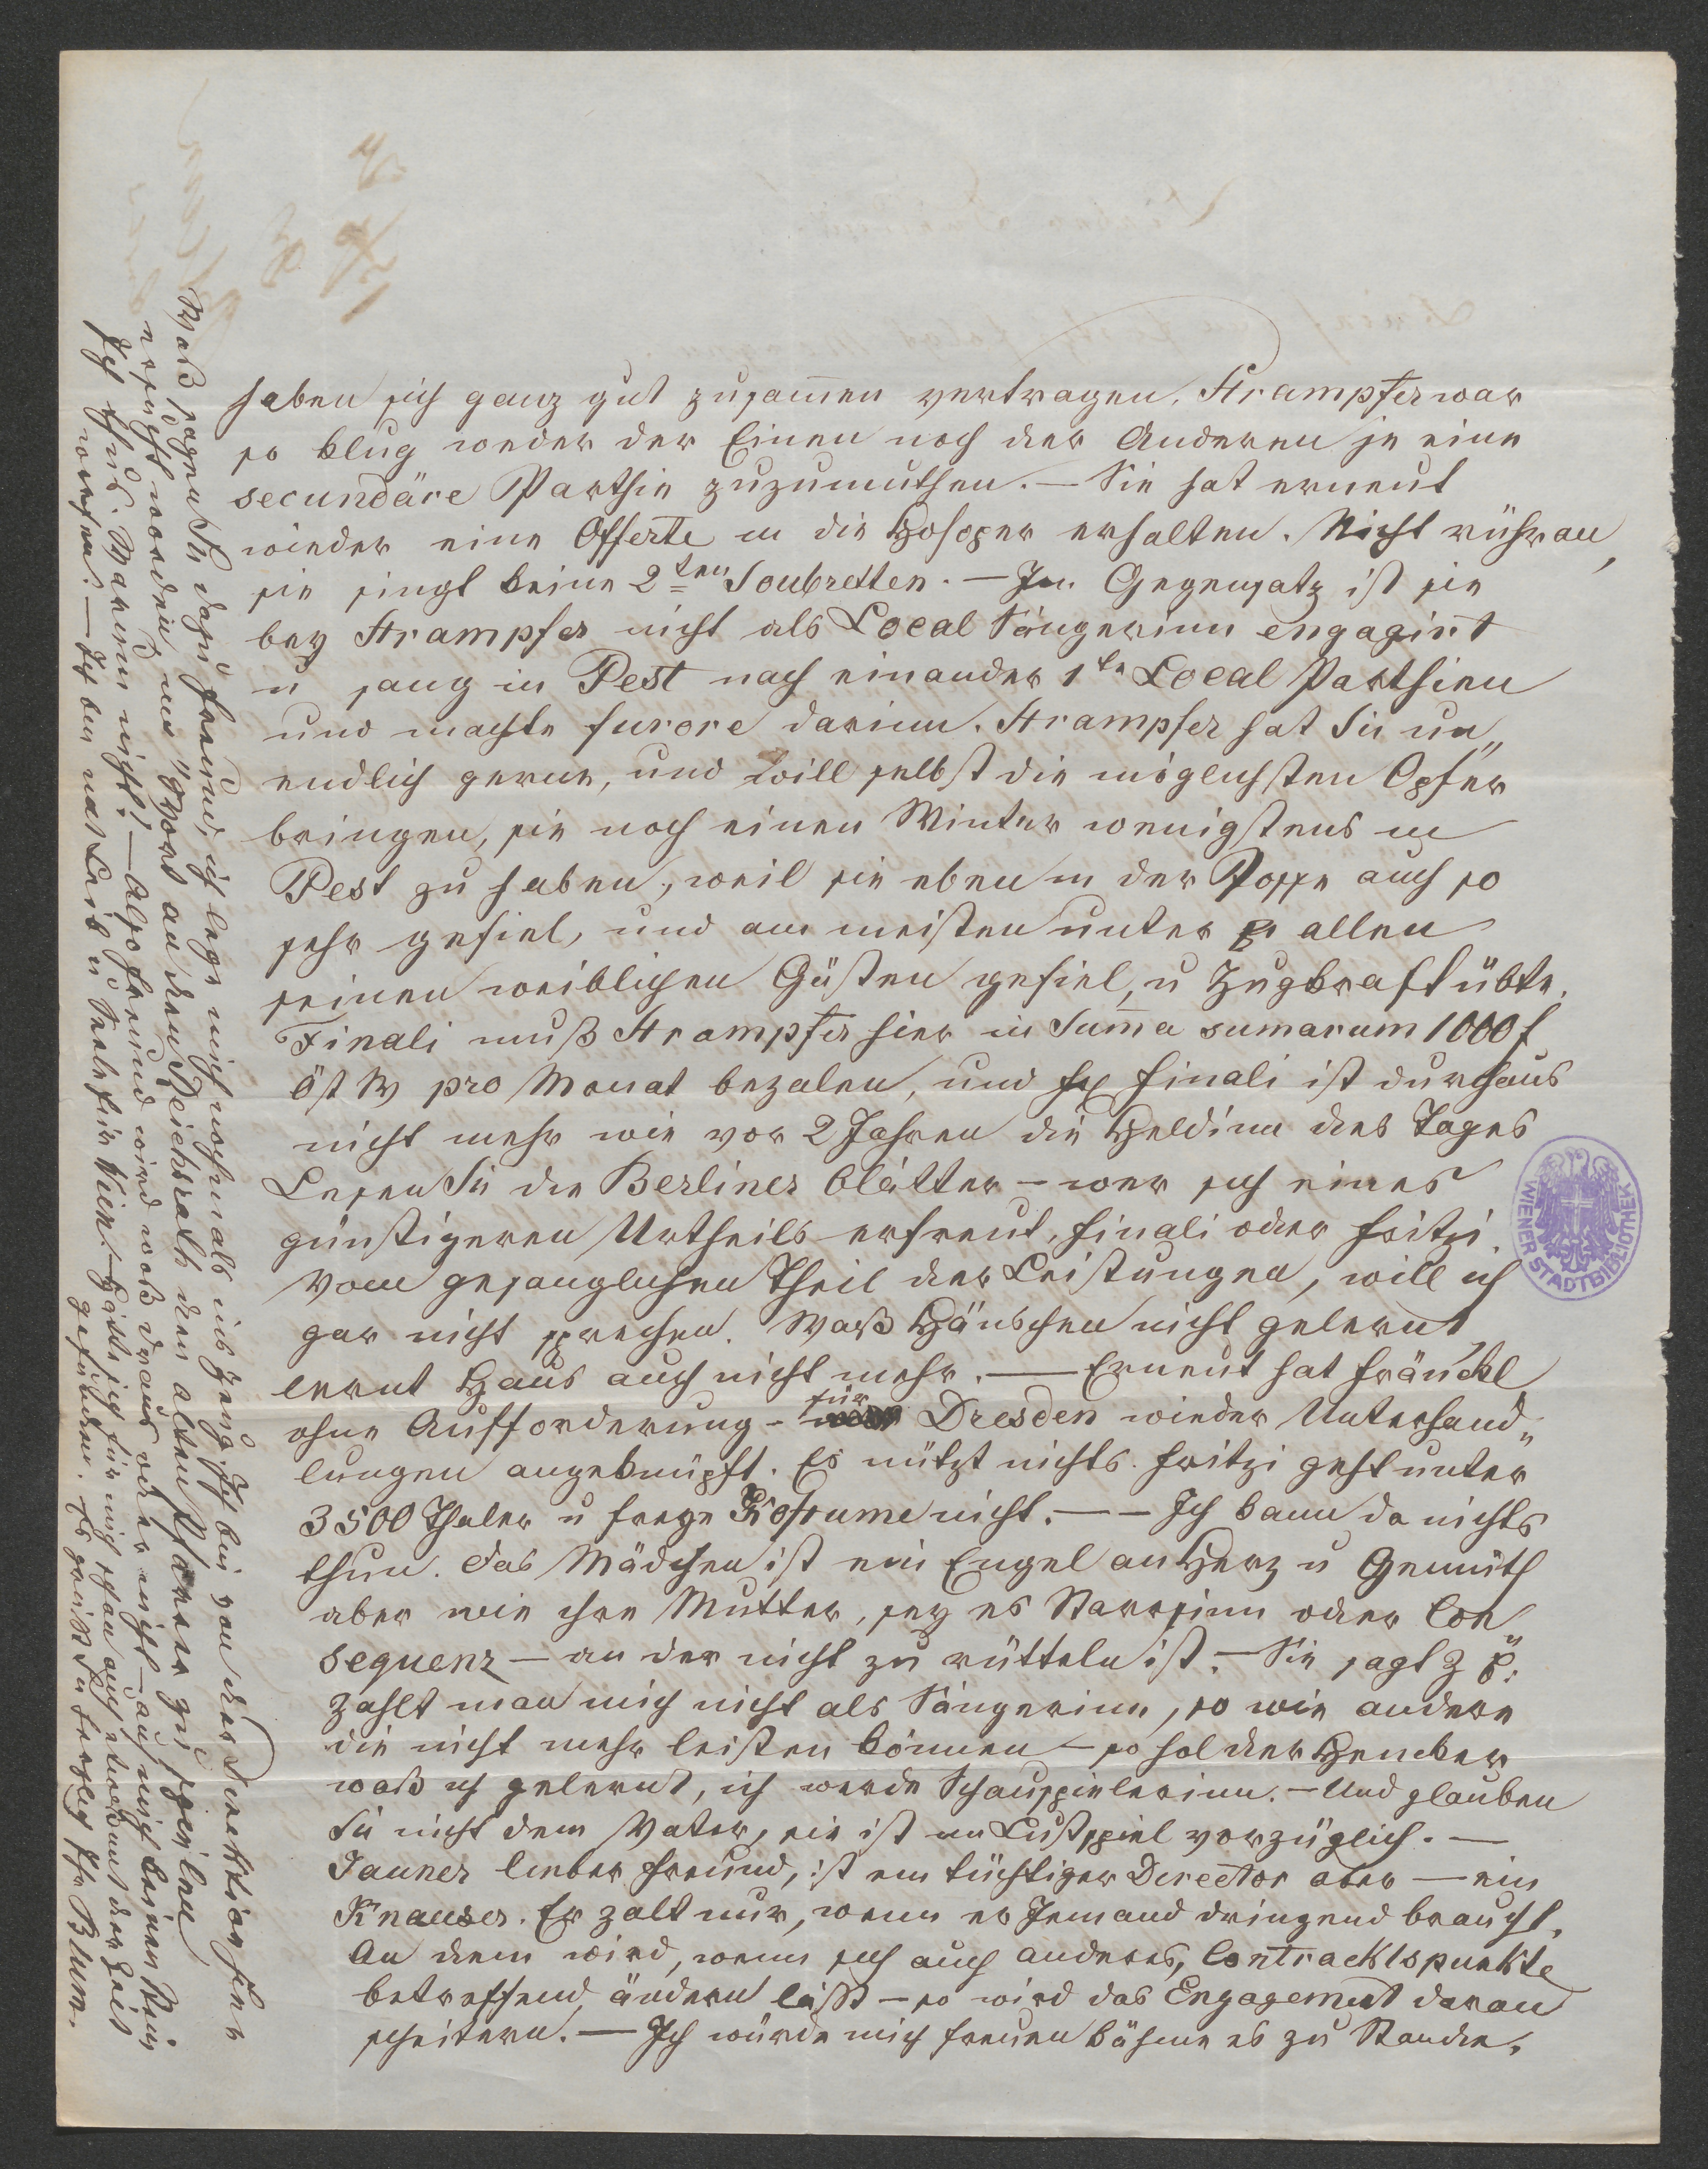 haben sich ganz gut zusam̄en vertragen. Strampfer war
so klug weder der Einen noch der Anderen je eine
secundäre Parthie zuzumuthen. — Sie hat erneut
wieder eine Offerte in die Hofoper erhalten. Nicht rühr an,
sie singt keine 2ten Soubretten. — Im Gegensatz ist sie
bey Strampfer nicht als Local Sängerinn engagirt
u sang in Pest nach einander 1te Local Parthien
und machte furore darinn. Strampfer hat Sie un„
endlich gerne, und will selbst die möglichsten Opfer
bringen, sie noch einen Winter wenigstens in
Pest zu haben, weil sie eben in der Posse auch so
sehr gefiel, und am meisten unter allen
seinen weiblichen Gästen gefiel, u Zugkraft übte.
Finali muß Strampfer hier in Sum̄a sumarum 1000 f
öst W pro Monat bezalen, und Finali ist durchaus
nicht mehr wie vor 2 Jahren die Heldinn des Tages
Lesen Sie die Berliner Blätter – wer sich eines
günstigeren Urtheils erfreut, Finali oder Fritzi.
Vom gesanglichen Theil der Leistungen, will ich
gar nicht sprechen. Waß Hänschen nicht gelernt,
lernt Hans auch nicht mehr. — Erneut hat Fränckl
ohne Aufforderung – für Dresden wieder Unterhand„
lungen angeknüpft. Es nützt nichts. Fritzi geht unter
3500 Thaler u freye Kostume nicht. — — Ich kann da nichts
thun. Das Mädchen ist ein Engel an Herz u Gemüth
aber wie ihre Mutter, sey es Starrsinn oder Con
sequenz — an der nicht zu rütteln ist. — Sie sagt z B:
zahlt man mich nicht als Sängerinn, so wie andere
die nicht mehr leisten können – so hol der Hencker
waß ich gelernt, ich werde Schauspielerinn. – Und glauben
Sie nicht dem Vater, sie ist im Lustspiel vorzüglich. —
Jauner lieber Freund, ist ein tüchtiger Director aber — ein
Knauser. Er zalt nur, wenn er Jemand dringend braucht.
An dem wird, wenn sich auch anderes, Contracktspunkte
betreffend ändern läßt – so wird das Engagement daran
scheitern. — Ich würde mich freuen kähme es zu Stande.
Waß sagen Sie dazu Freund, ich lege mich nochmals ins Zeug. Ich bin von der Direktion hier
ersucht worden, im "Mord an den Reichsrath den alten Pfarrer zu spielen
Ich thus. Warum nicht? — Also Freund wird waß draus oder nicht — auf mich keinen Stein
werfen. — Ich bin mit Leib u Seele für Wien. – Hätte sich für mich schon auch etwas mit der Zeit
gefunden. Es grüßt u herzlich Ihr Blum.
WIENER STADTBIBLIOTHEK